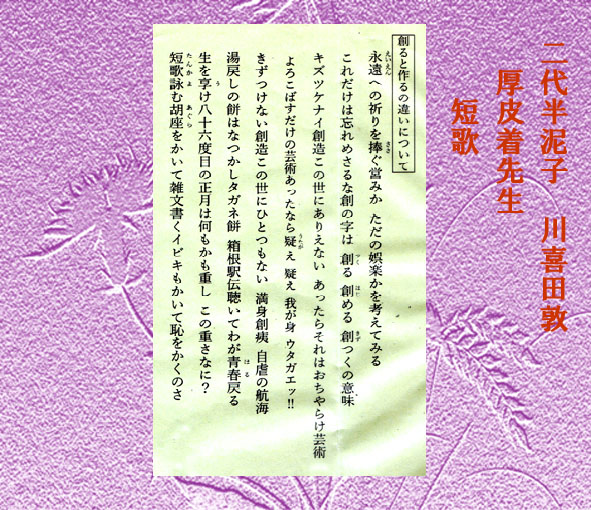 二代半泥子 川喜田敦
厚皮着先生
短歌
創ると作るの違いについて
永遠への祈りを捧ぐ営みか ただの娯楽かを考えてみる
これだけは忘れめさるな創の字は 創る 創める 創つくの意味
キズツケナイ創造この世にありえない あったらそれはおちゃらけ芸術
よろこばすだけの芸術あったなら疑え 疑え 我が身 ウタガエッ!!
きずつけない創造この世にひとつもない 満身創痍 自虐の航海
湯戻しの餅はなつかしタガネ餅 箱根駅伝聴いてわが青春戻る
生を享け八十六度目の正月は何もかも重し この重さなに?
短歌詠む胡座をかいて雑文書くイビキもかいて恥をかくのさ